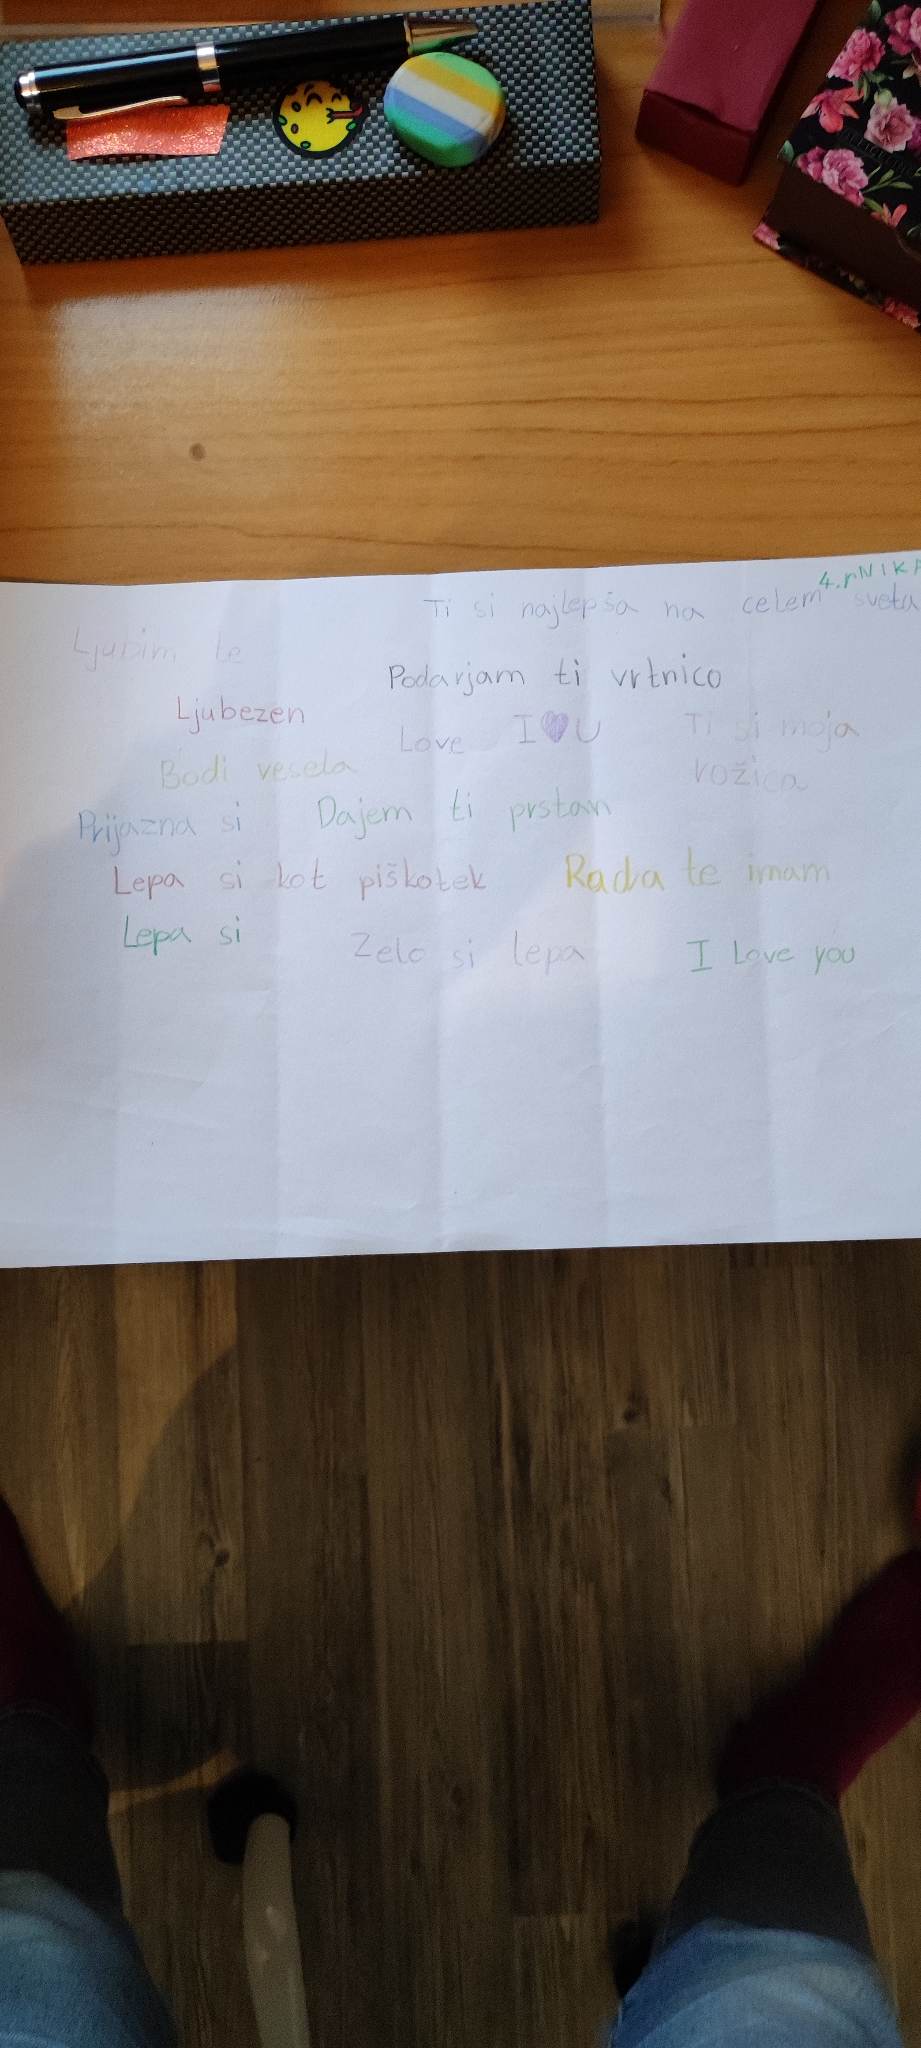 4.r NIKA
Ti si najlepša na celem sveta
Ljubim te
Podarjam ti vrtnico
Ljubezen
Love I♥U Ti si moja
Bodi vesela rožica
Prijazna si Dajem ti prstan
Lepa si kot piškotek Rada te imam
Lepa si Zelo si lepa I Love you